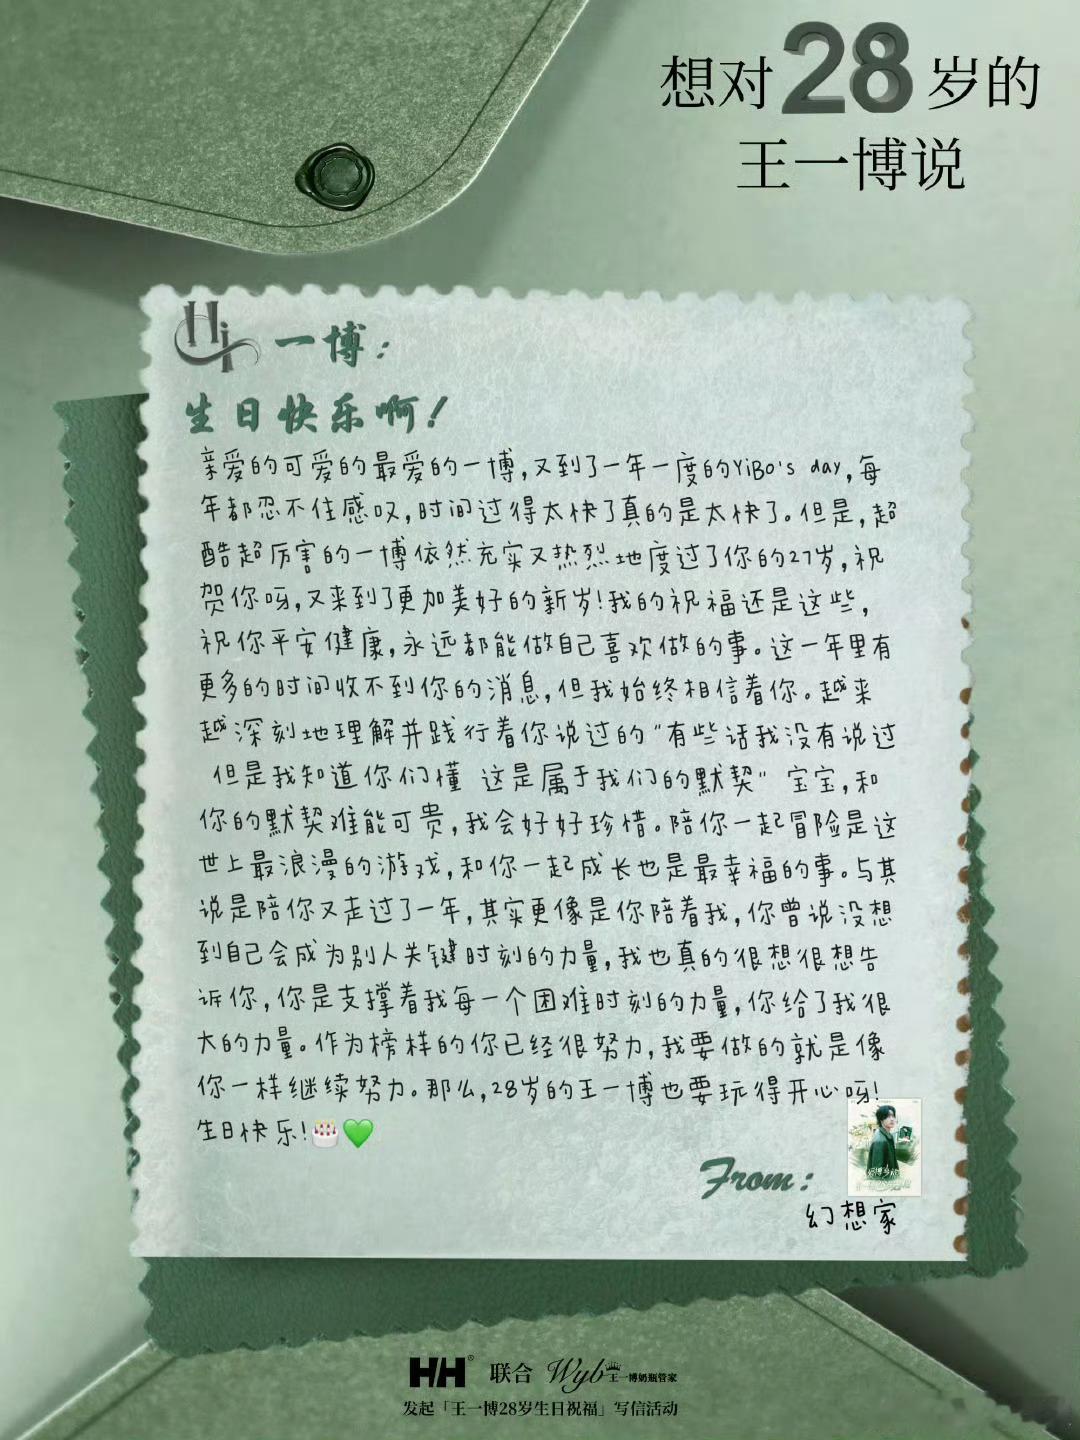 想对28岁的
王一博说
Hi 一博：
生日快乐啊！
亲爱的可爱的最爱的一博，又到了一年一度的YiBo's day，每
年都忍不住感叹，时间过得太快了真的是太快了。但是，超
酷超厉害的一博依然充实又热烈地度过了你的27岁，祝
贺你呀，又来到了更加美好的新岁！我的祝福还是这些，
祝你平安健康，永远都能做自己喜欢做的事。这一年里有
更多的时间收不到你的消息，但我始终相信着你。越来
越深刻地理解并践行着你说过的“有些话我没有说过
但是我知道你们懂 这是属于我们的默契” 宝宝，和
你的默契难能可贵，我会好好珍惜。陪你一起冒险是这
世上最浪漫的游戏，和你一起成长也是最幸福的事。与其
说是陪你又走过了一年，其实更像是你陪着我，你曾说没想
到自己会成为别人关键时刻的力量，我也真的很想很想告
诉你，你是支撑着我每一个困难时刻的力量，你给了我很
大的力量。作为榜样的你已经很努力，我要做的就是像
你一样继续努力。那么，28岁的王一博也要玩得开心呀！
生日快乐！🎂💚
From：
幻想家
HH® 联合 Wyb王一博奶瓶管家
发起「王一博28岁生日祝福」写信活动